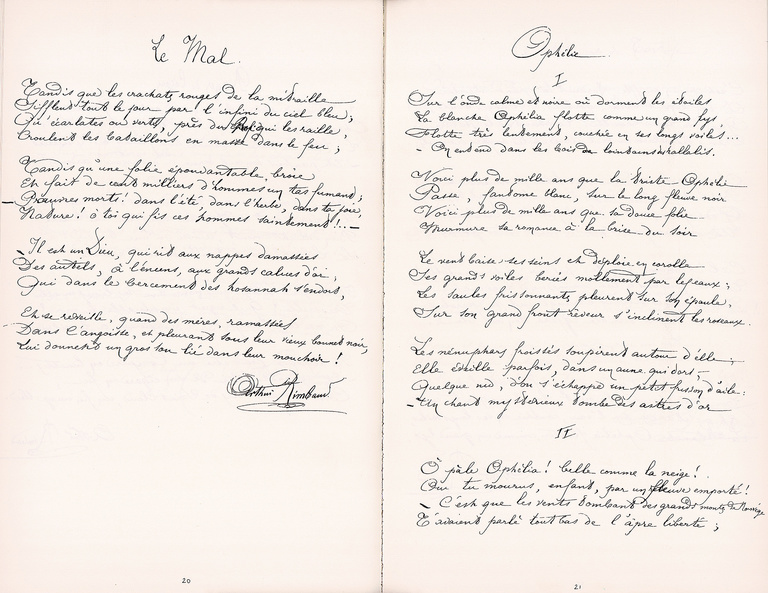 Le Mal.
Tandis que les crachats rouges de la mitraille
Sifflent tout le jour par l'infini du ciel bleu;
Qu'écarlates ou verts, près du Roi qui les raille,
Croulent les bataillons en masse dans le feu;
Tandis qu'une folie épouvantable, broie
Et fait de cent milliers d'hommes un tas fumant;
— Pauvres morts! dans l'été, dans l'herbe, dans ta joie,
Nature! ô toi qui fis ces hommes saintement!.. —
— Il est un Dieu, qui rit aux nappes damassées
Des autels, à l'encens, aux grands calices d'or,
Qui dans le bercement des hosannah s'endort,
Et se réveille, quand des mères, ramassées
Dans l'angoisse, et pleurant sous leur vieux bonnet noir,
Lui donnent un gros sou lié dans leur mouchoir!
Arthur Rimbaud
20
Ophélie
I
Sur l'onde calme et noire où dorment les étoiles
La blanche Ophélia flotte comme un grand lys,
Flotte très lentement, couchée en ses longs voiles...
— On entend dans les bois de lointains hallalis.
Voici plus de mille ans que la triste Ophélie
Passe, fantôme blanc, sur le long fleuve noir.
Voici plus de mille ans que sa douce folie
Murmure sa romance à la brise du soir
Le vent baise ses seins et déploie en corolle
Ses grands voiles bercés mollement par les eaux;
Les saules frissonnants pleurent sur son épaule,
Sur son grand front rêveur s'inclinent les roseaux.
Les nénuphars froissés soupirent autour d'elle;
Elle éveille parfois, dans un aune qui dort,
Quelque nid, d'où s'échappe un petit frisson d'aile:
— Un chant mystérieux tombe des astres d'or
II
Ô pâle Ophélia! belle comme la neige!
Oui tu mourus, enfant, par un fleuve emporté!
— C'est que les vents tombant des grands monts de Norwège
T'avaient parlé tout bas de l'âpre liberté;
21